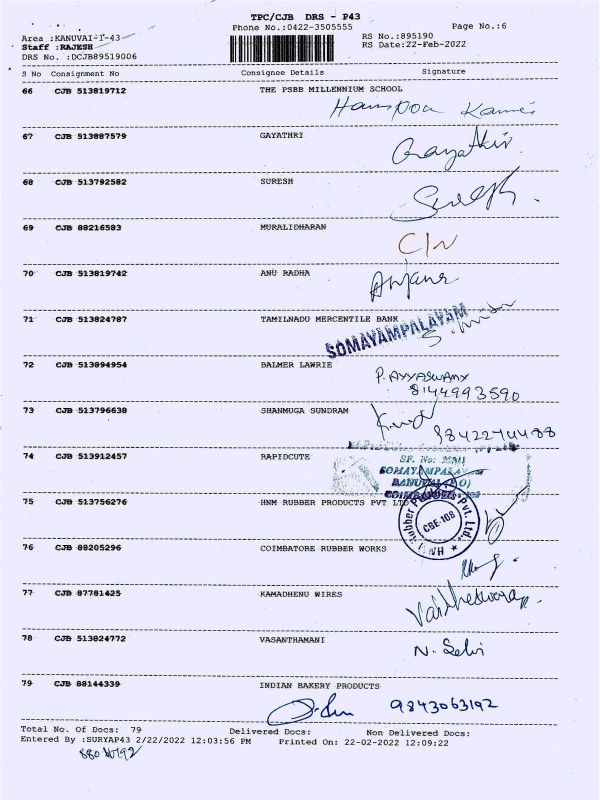 TPC/CJB DRS - P43
Phone No.:0422-3505555 Page No.:6
Area :KANUVAI-T-43 RS No.:895190
Staff :RAJESH RS Date:22-Feb-2022
DRS No. :DCJB89519006
S No Consignment No Consignee Details Signature
66 CJB 513819712 THE PSBB MILLENNIUM SCHOOL
67 CJB 513887579 GAYATHRI
Gayathir
68 CJB 513792582 SURESH
Suresh
69 CJB 88216583 MURALIDHARAN
C/N
70 CJB 513819742 ANU RADHA
Anjana
71 CJB 513824787 TAMILNADU MERCENTILE BANK
SOMAYAMPALAYAM
72 CJB 513894954 BALMER LAWRIE
P. AYYASWAMY
8144993590
73 CJB 513796638 SHANMUGA SUNDRAM
74 CJB 513912457 RAPIDCUTE
SF. No:
SOMAYAMPALA
75 CJB 513756276 HNM RUBBER PRODUCTS PVT LTD
Rubber Pvt. Ltd.
CBE-108
76 CJB 88205296 COIMBATORE RUBBER WORKS
77 CJB 87781425 KAMADHENU WIRES
78 CJB 513824772 VASANTHAMANI
N. Selvi
79 CJB 88144339 INDIAN BAKERY PRODUCTS
9843063192
Total No. Of Docs: 79 Delivered Docs: Non Delivered Docs:
Entered By :SURYAP43 2/22/2022 12:03:56 PM Printed On: 22-02-2022 12:09:22